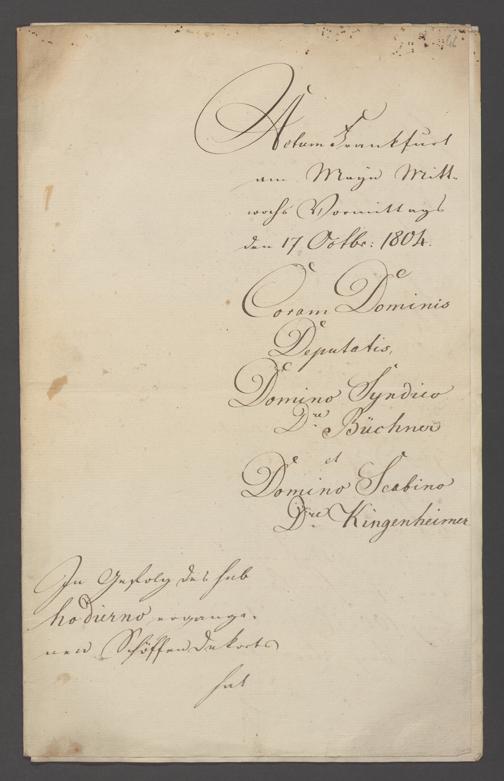 Actum Frankfurt
am Mayn Mitt-
wochs Vormittags
den 17 Octbr: 1804.
Coram Dominis
Deputatis,
Domino Syndico
Dre. Büchner
et
Domino Scabino
Dre. Kingenheimer
In Gefolg des sub
hodierno ergange-
nen Schöffen Dekrets
hat